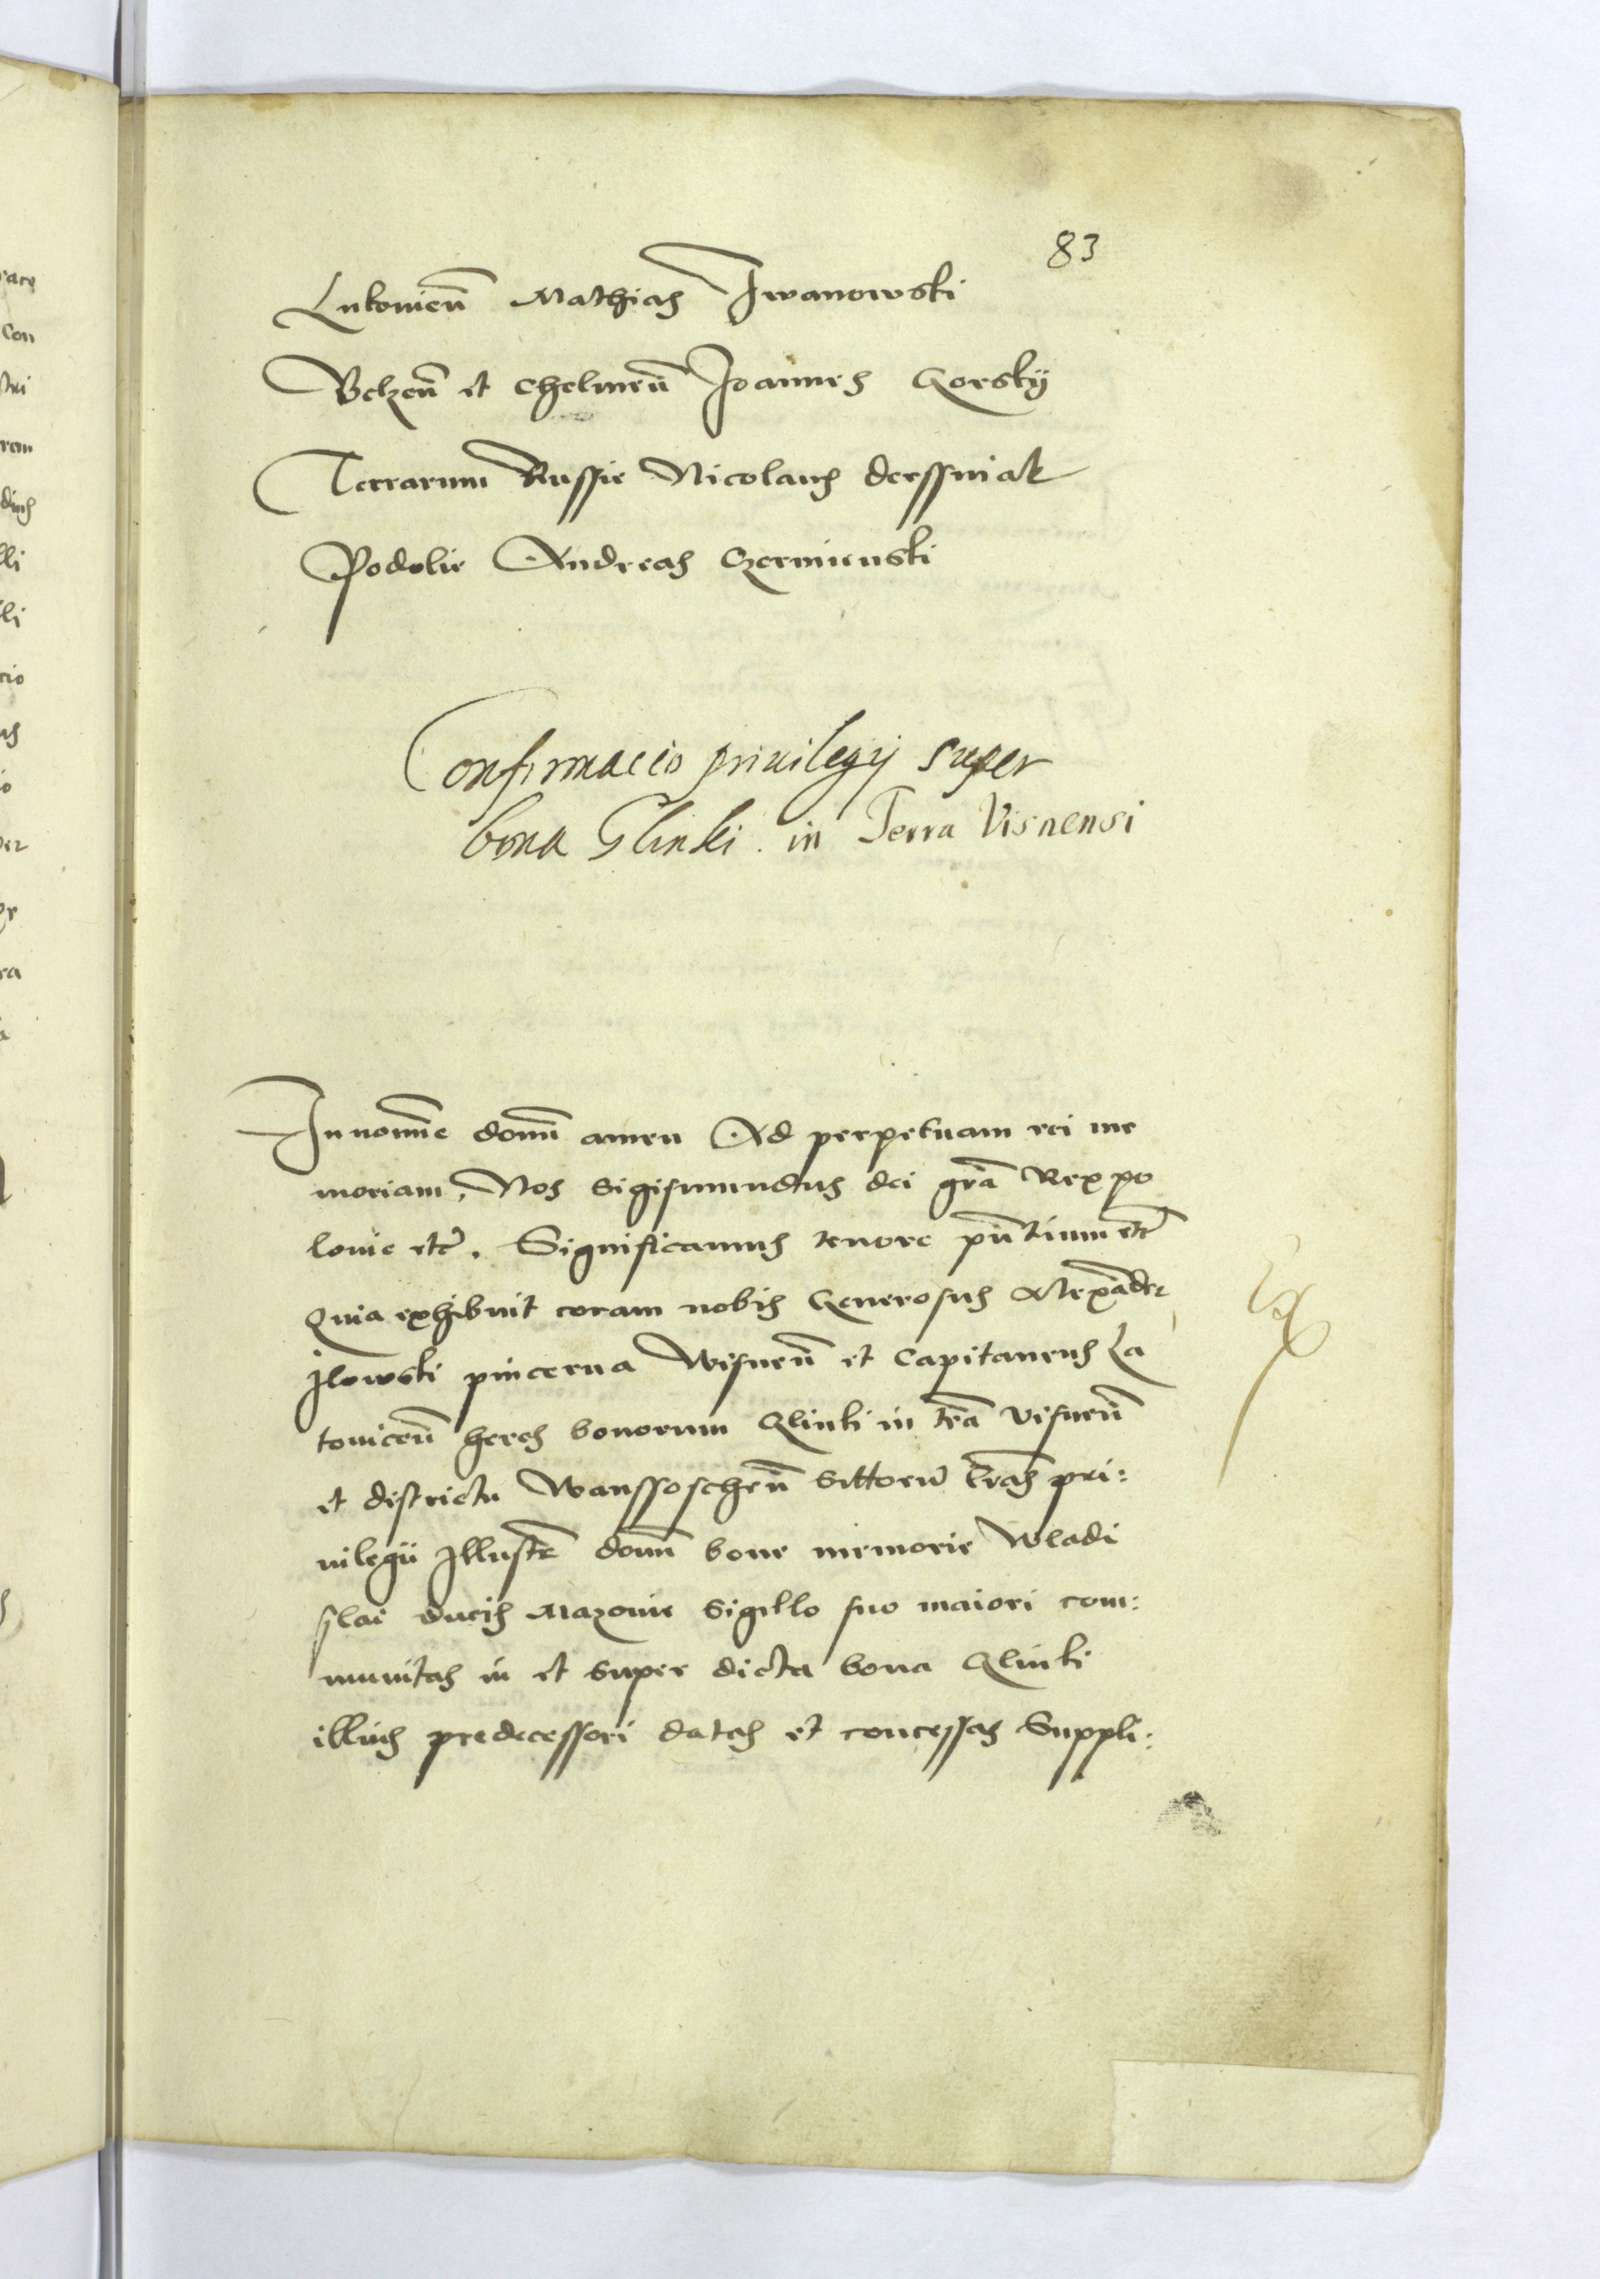 83
Lukovien̄ Mathias Iwanowski
Belzen̄ et Chelmen̄ Joannes Gorskij
Terrarum Russie Nicolaus Derssniak
Podolie Andreas Czerminski
Confirmacio privilegij super
bona Glinki in Terra Visnensi
In nom̄e domī amen Ad perpetuam rei me
moriam, Nos Sigismundus dei gr̄a Rex po
lonie etc̄. Significamus tenore pn̄tium etc̄
Quia exhibuit coram nobis Generosus Alexāder
Ilowski pincerna Wisnen̄ et Capitaneus La
tovicen̄ heres bonorum Glinki in tr̄a visnen̄
et districtu Wanssoschen̄ l̄ras pri:
uilegii Illust̄ domī bone memorie Wladi
slai ducis Mazovie Sigillo suo maiori com:
munitas in et super dicta bona Glinki
illius predecessori datas et concessas Suppli: